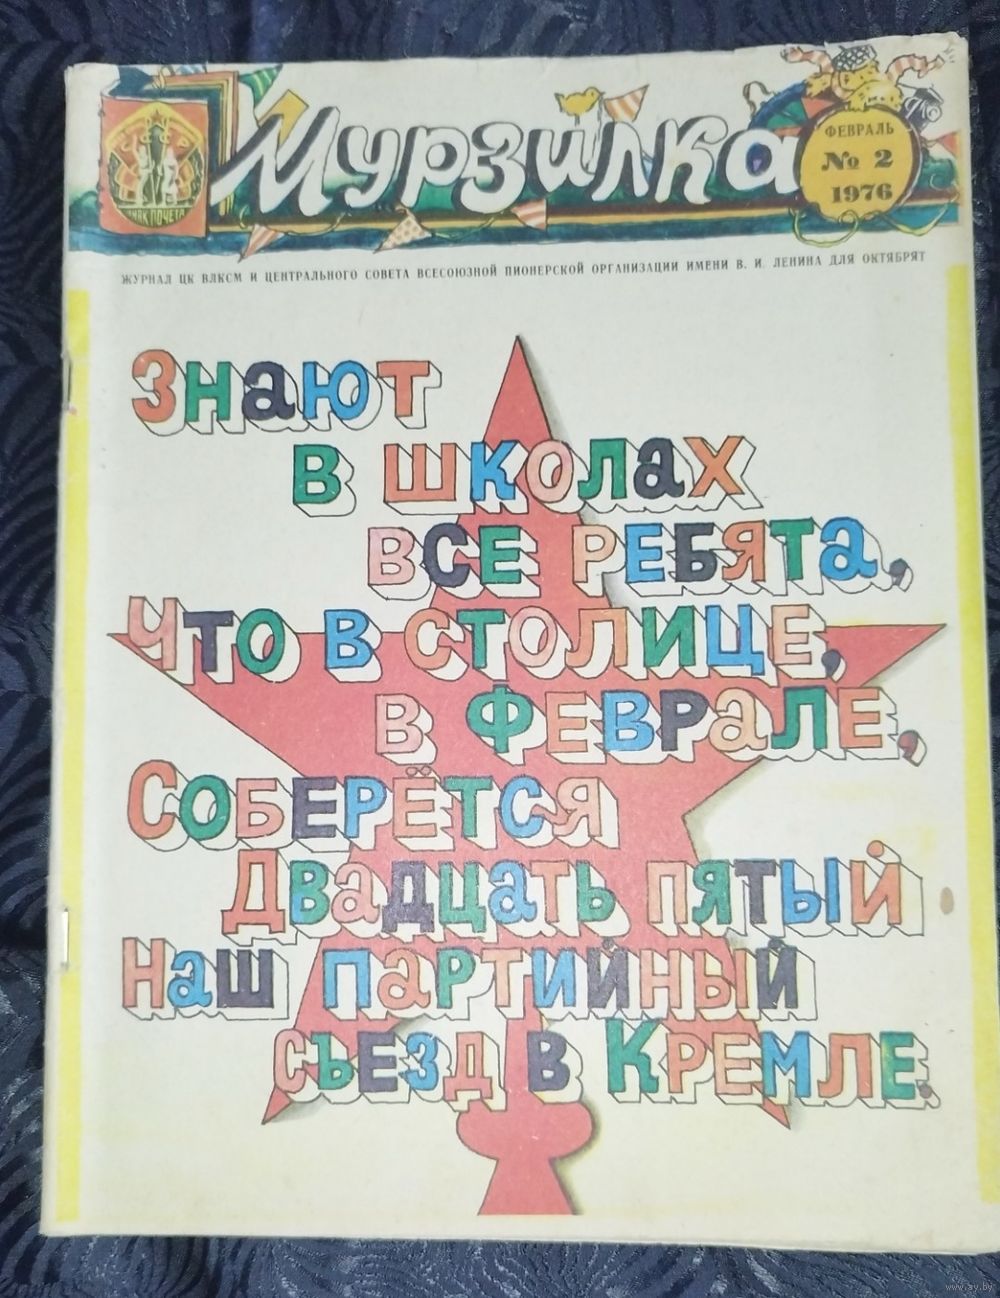 Мурзилка
ФЕВРАЛЬ
№ 2
1976
ЗНАК ПОЧЕТА
ЖУРНАЛ ЦК ВЛКСМ И ЦЕНТРАЛЬНОГО СОВЕТА ВСЕСОЮЗНОЙ ПИОНЕРСКОЙ ОРГАНИЗАЦИИ ИМЕНИ В. И. ЛЕНИНА ДЛЯ ОКТЯБРЯТ
Знают
в школах
все ребята,
Что в столице,
в феврале,
Соберётся
Двадцать пятый
Наш партийный
съезд в Кремле.
www.ay.by